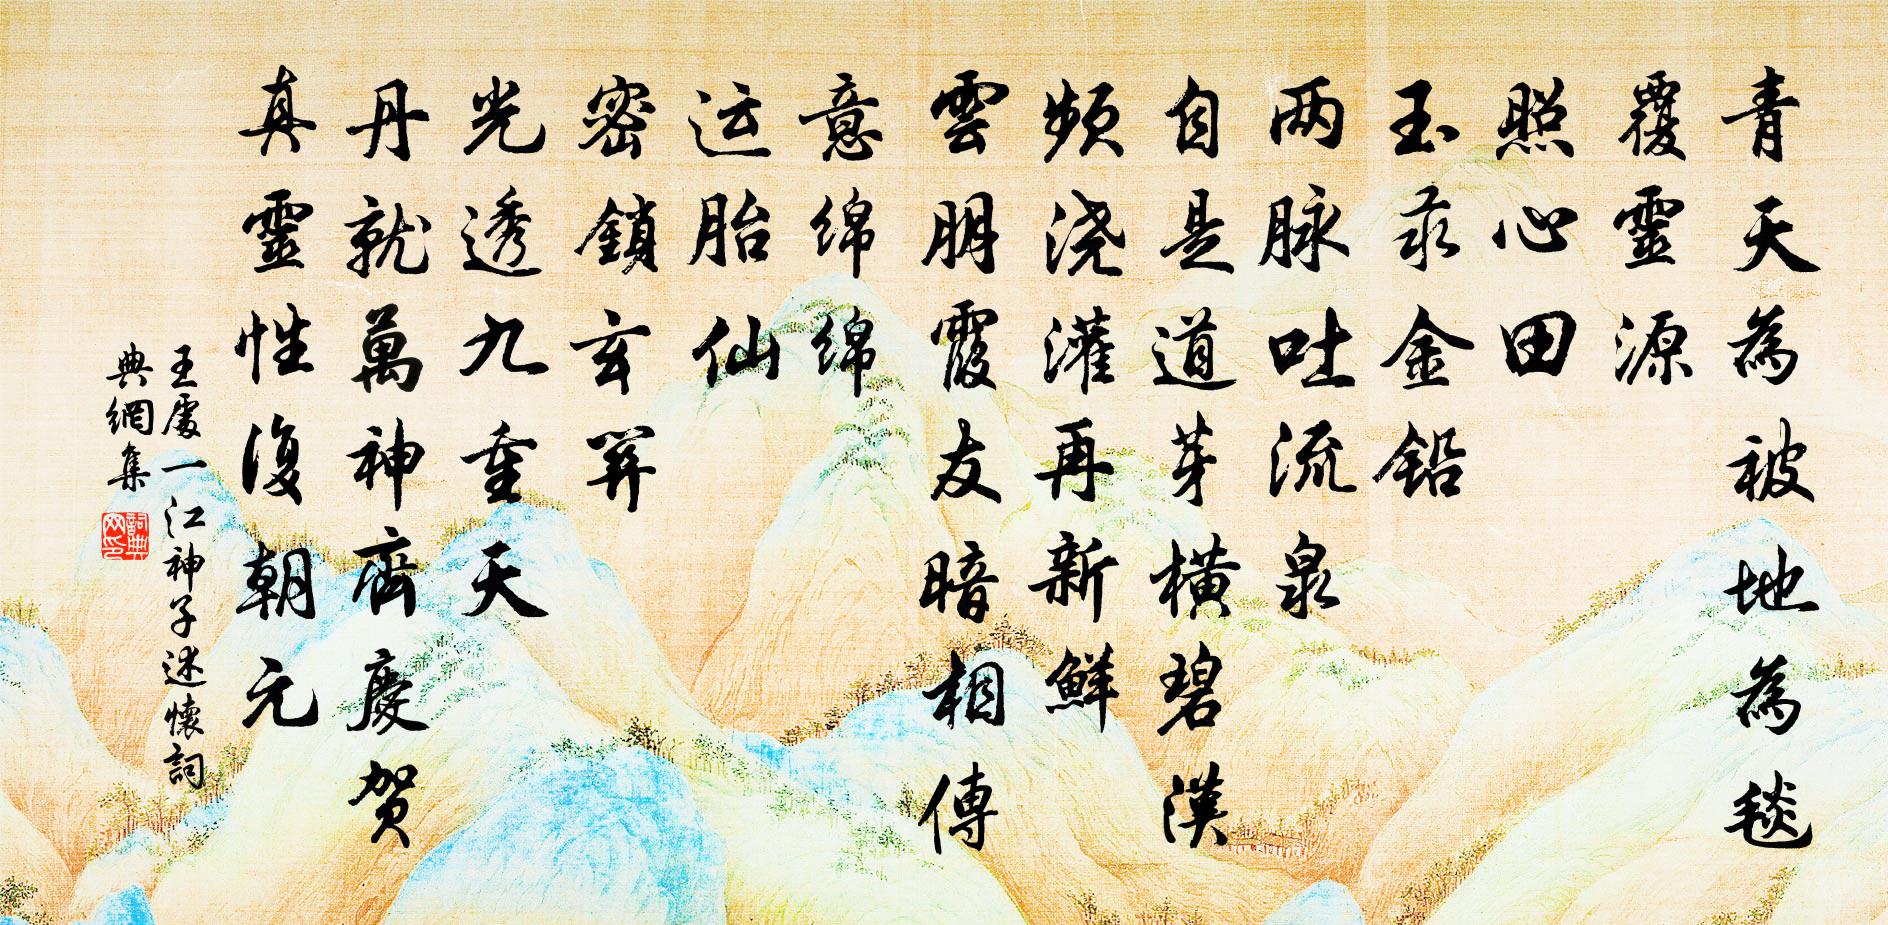 青天為被地為毯
覆靈源
照心田
玉汞金鉛
两脉吐流泉
自是道芽横碧漢
频浇灌再新鮮
雲朋霞友暗相傳
意绵绵
运胎仙
密鎖玄関
光透九重天
丹就萬神齊慶贺
真靈性復朝元
王處一江神子述懷詞
典網集
詞典
网印